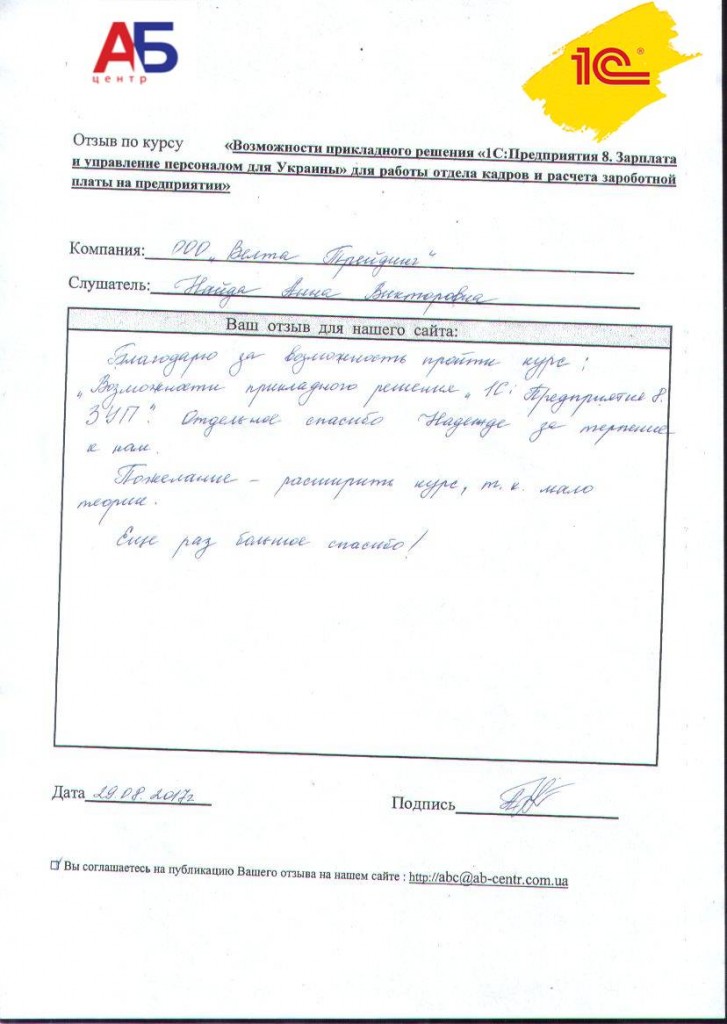 АБ
центр
1С®
Отзыв по курсу «Возможности прикладного решения «1С:Предприятия 8. Зарплата
и управление персоналом для Украины» для работы отдела кадров и расчета зароботной
платы на предприятии»
Компания: ООО „Велта Трейдинг"
Слушатель: Найда Анна Викторовна
Ваш отзыв для нашего сайта:
Благодарю за возможность пройти курс:
„Возможности прикладного решения „1С: Предприятие 8.
ЗУП". Отдельное спасибо Надежде за терпение
к нам.
Пожелание – расширить курс, т.к. мало
теории.
Еще раз большое спасибо!
Дата 29.08.2017г Подпись
Вы соглашаетесь на публикацию Вашего отзыва на нашем сайте : http://abc@ab-centr.com.ua